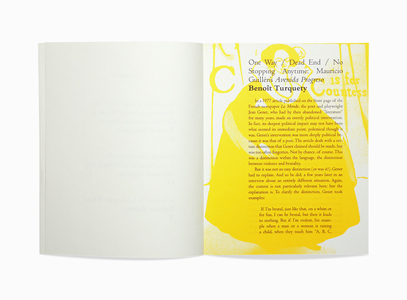 One Way / Dead End / No
Stopping Anytime: Mauricio
Guillén's Avenida Progreso
Benoît Turquety
C is for
Countess
In a 1977 article published on the front page of the
French newspaper Le Monde, the poet and playwright
Jean Genet, who had by then abandoned "literature"
for some years, made an overtly political intervention.
In fact, its deepest political impact may not have been
what seemed its immediate point, polemical though it
was. Genet's intervention was more deeply political be-
cause it was that of a poet. The article dealt with a cer-
tain distinction that Genet claimed should be made, but
was too often forgotten. Not by chance, of course. This
was a distinction within the language, the distinction
between violence and brutality.
But it was not an easy distinction (or was it?). Genet
had to explain. And so he did, a few years later in an
interview about an entirely different situation. Again,
the context is not particularly relevant here, but the
explanation is. To clarify the distinction, Genet took
examples:
If I'm brutal, just like that, on a whim or
for fun, I can be brutal, but then it leads
to nothing. But if I'm violent, for exam-
ple when a man or a woman is raising
a child, when they teach him "A, B, C,